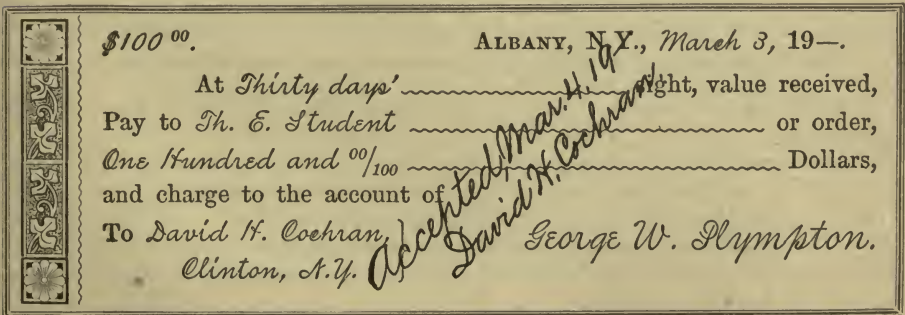 $100 00. ALBANY, N.Y., March 3, 19—.
At Thirty days' sight, value received,
Pay to Th. E. Student or order,
One Hundred and 00/100 Dollars,
and charge to the account of
To David H. Cochran, George W. Plympton.
Clinton, N.Y.
Accepted, Mar. 4, 19—
David H. Cochran